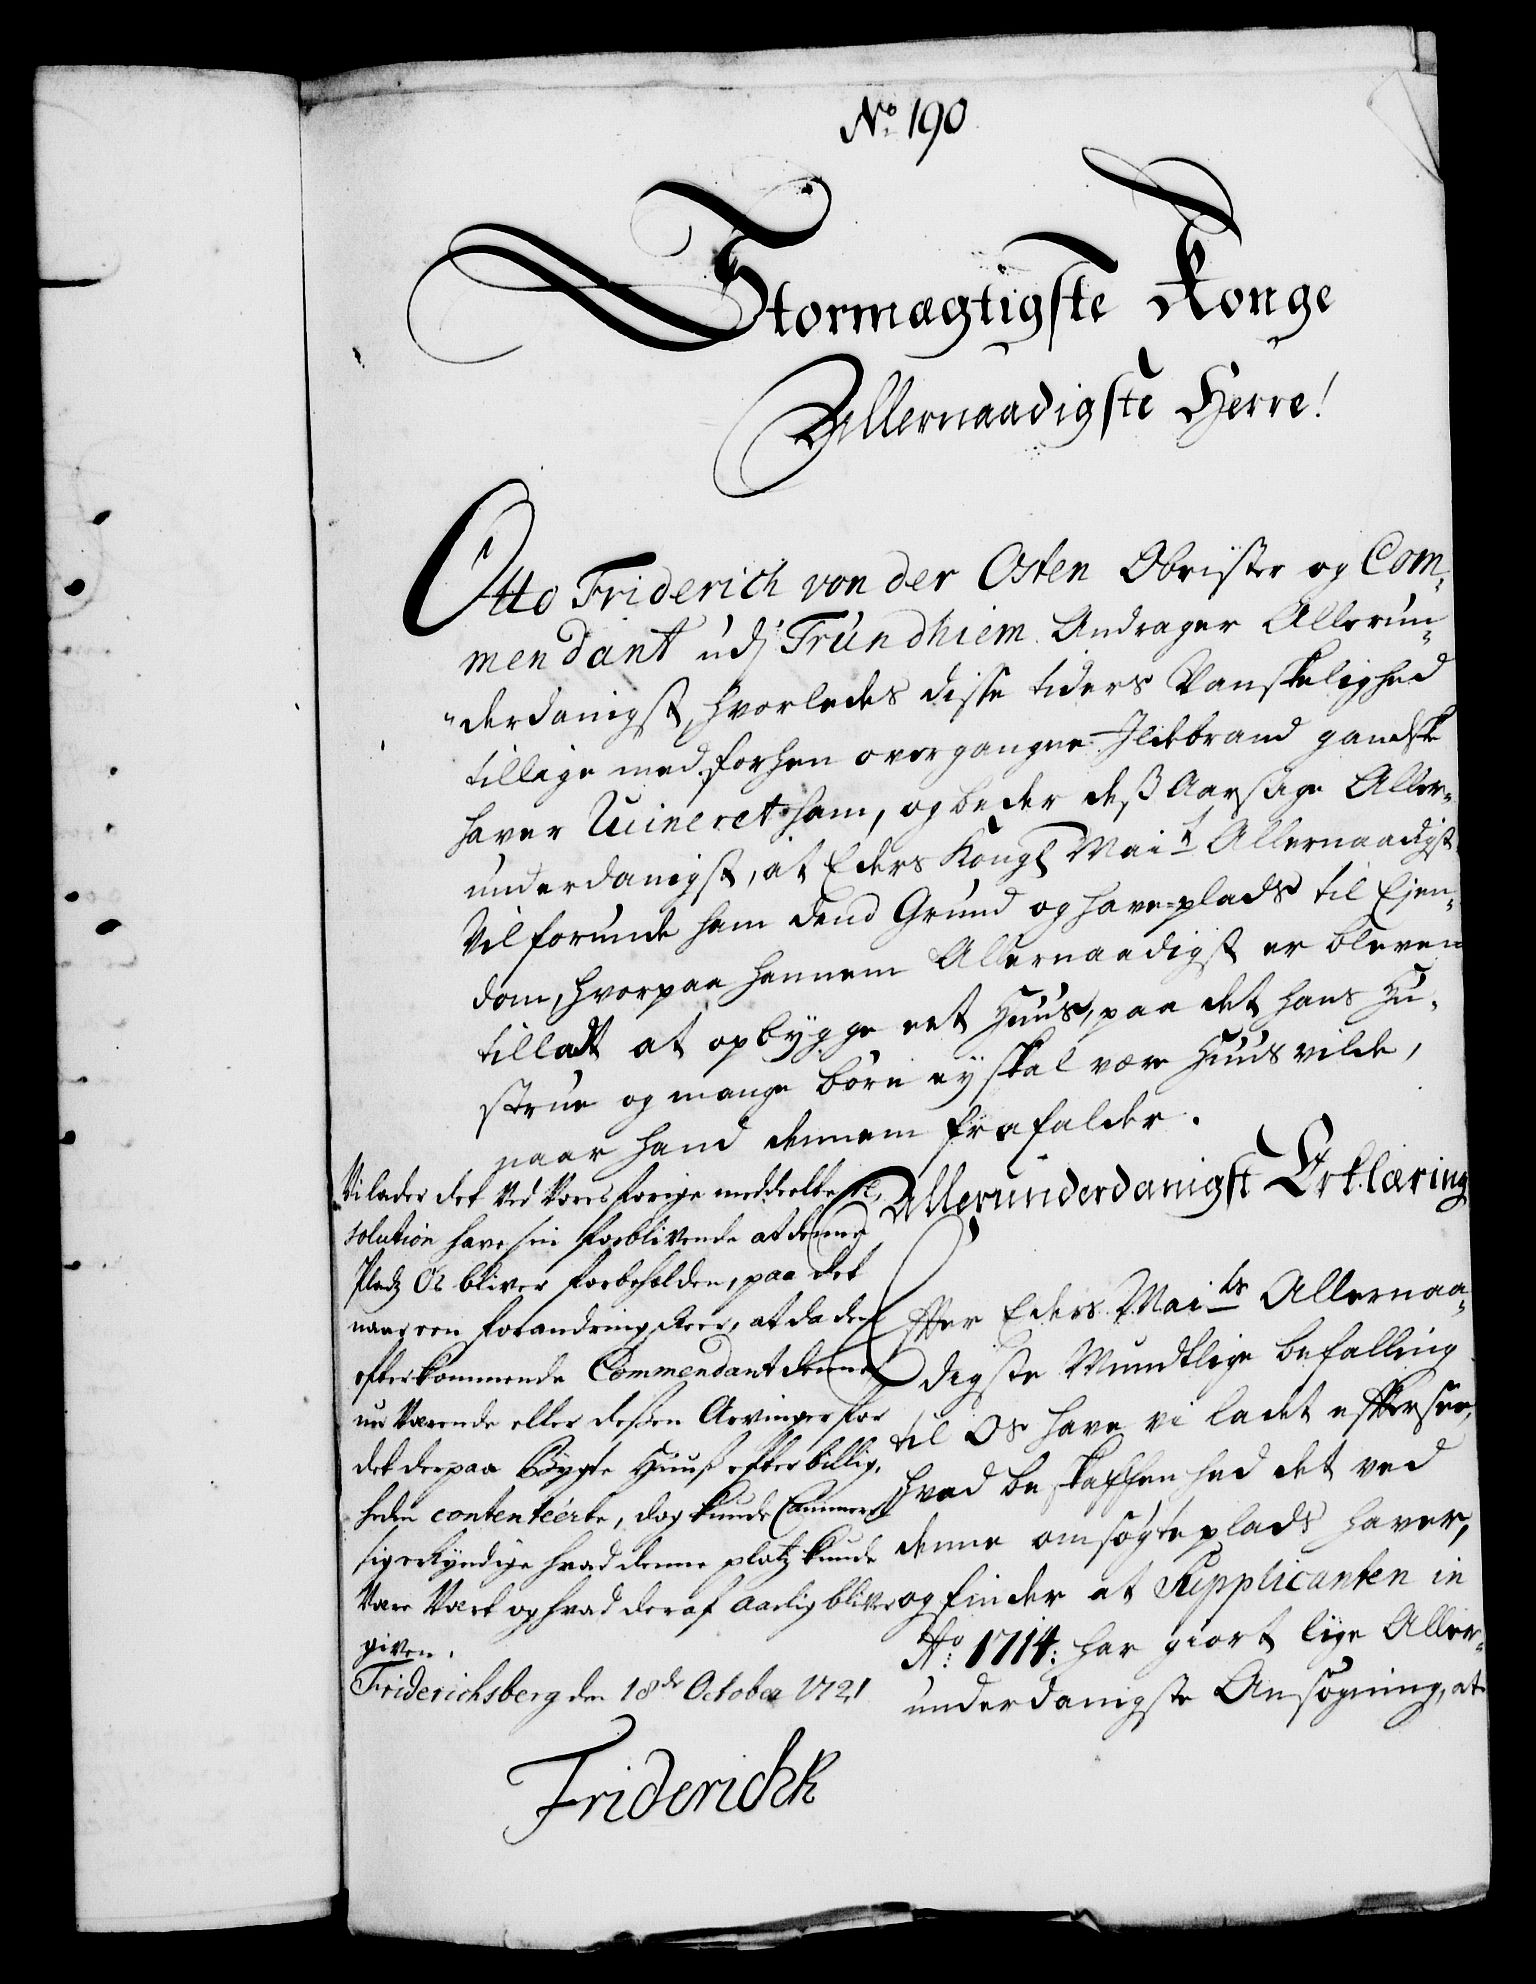 No 190
Stormægtigste Konge
Allernaadigste Herre!
Otto Friderich von der Osten Obrister og Com-
mendant udj Trundhiem Andrager Allerun-
derdanigst, hvorledes disse tiders Vanskelighed
tillige med forhen overgangne Jldebrand gandske
haver Ruineret ham, og beder deß Aarsage Aller-
underdanigst, at Eders Kongl Mait Allernaadigst
Vil forunde ham dend Grund og haveplads til Ejen-
dom, hvorpaa hannem Allernaadigst er bleven
tilladt at opbygge eet Huus, paa det hans Hu-
strue og mange börn ej skal være Huusvilde,
naar hand dennem frafalder.
Allerunderdanigst Erklæring
Efter Eders Maits Allernaa-
digste Mundtlige befalling
til Os have vi ladet eftersee,
hvad beskaffenhed det ved
denne omsögte plads haver,
og finder at Supplicanten in
Ao: 1714: har giort lige Aller-
underdanigste Ansögning, at
Vi lader det Ved Vores forige meddeelte Re-
solution have sin forblivende at denne
Pladz Os bliver forbeholden, paa det
naar een forandring skeer, at da den
efterkommende Commendant denne
nu Værende eller deßen Arvinger for
det derpaa Bÿgte Huuß efter billig-
heden contenteérte, dog kunde Cammeret
sig erkyndige hvad denne platz kunde
Være Værd og hvad deraf Aarlig bliver
given.
Friderichsberg den 18de October 1721
FriderichR